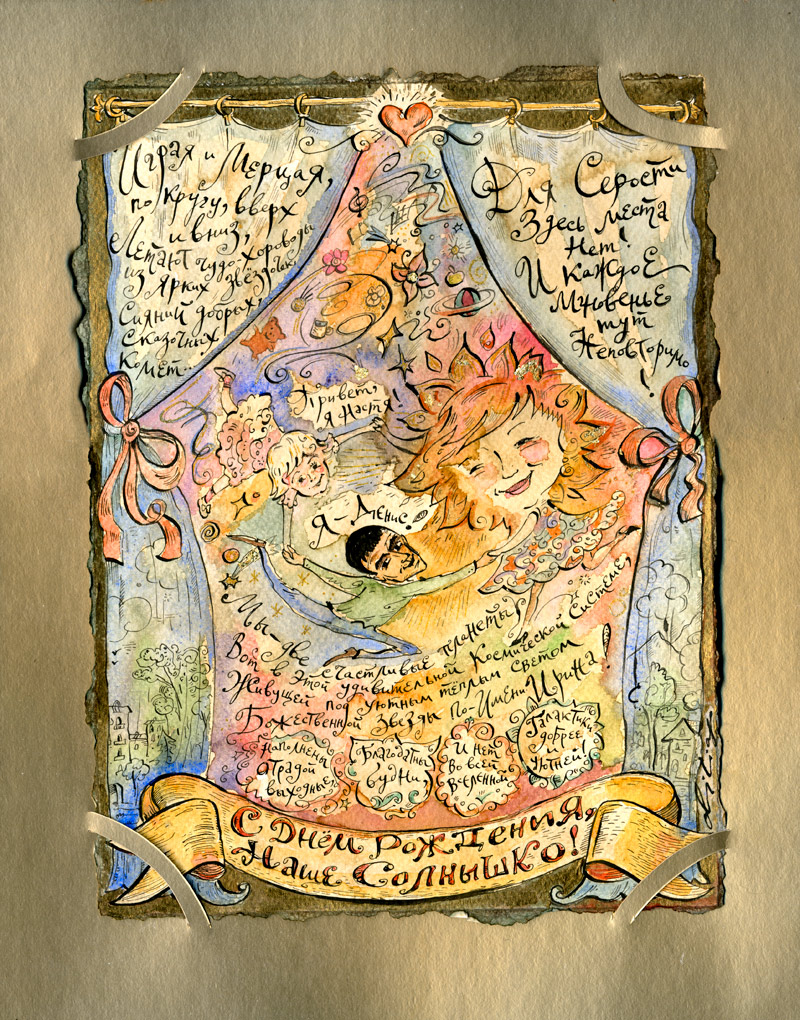 Играя и Мерцая,
по кругу, вверх
и вниз,
Летают чудо-хороводы
из Ярких звёздочек,
Сияний добрых,
Сказочных
Комет...
Для Серости
Здесь места
Нет!
И каждое
Мгновенье
тут
Неповторимо
!
Привет,
я Настя!
Я - Денис!
Мы - две счастливые планеты
Вот в этой удивительной Космической системе,
Живущей под уютным тёплым светом
Божественной звезды по-имени Ирина!
Наполнены
отрадой
выходные
Благодатны
будни
И нет
во всей
вселенной
Галактики
добрее
и
уютней!
С Днём Рождения,
Наше Солнышко!